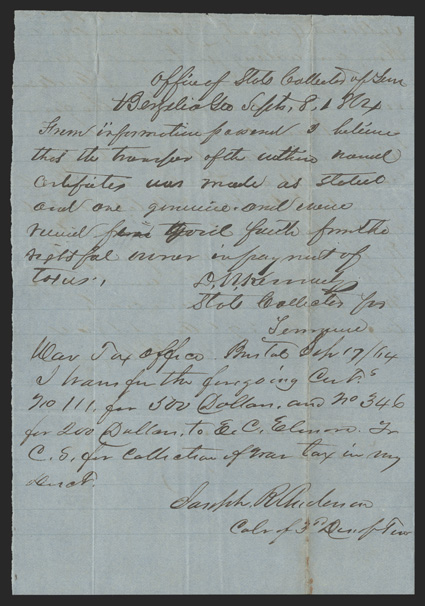 Office of State Collector of Tenn
Berzelia Geo Sept, 8, 1864
From information powered I believe
that the transfer of the within named
certificates was made as stated
and are genuine and were
received in good faith from the
rightful owner in payment of
taxes,
State Collector for
Tennessee
War Tax Office Bristol Sep 17/64
I transfer the foregoing Cert.s
No 111, for 500 Dollars, and No 346
for 200 Dollars, to E. C. Elmore Tr
C. S. for collection of war tax in my
Dist.
Joseph R Anderson
Colr of 3d Div of Ten